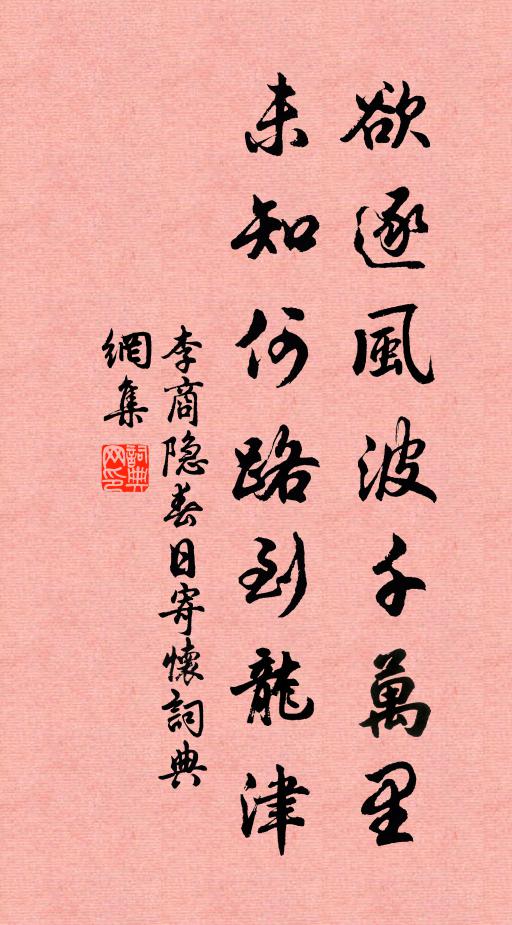 欲逐風波千萬里
未知何路到龍津
李商隐春日寄懷詞典
網集
詞典
网印